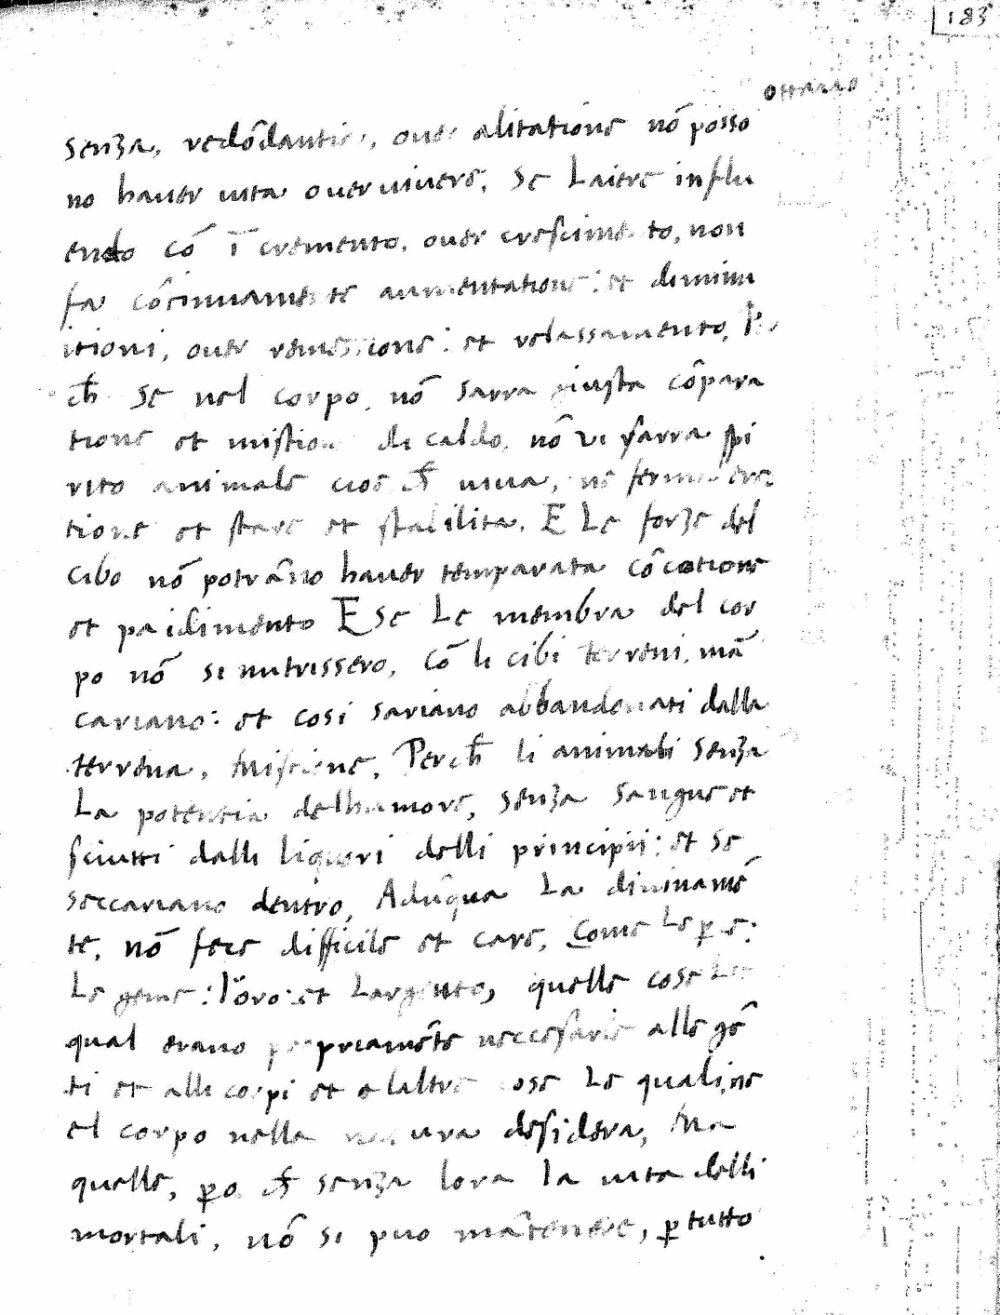 183
ottauo
senza, redōdantia, ouer alitatione nō posso
no hauer uita ouer uiuere, Se Laiere influ
endo cō ī cremento, ouer crescimento, non
fa cōtinuamente aumentatione: et diminu
itioni, ouer remessione: et relassamento, P
ch̄ se nel corpo, nō sarra giusta cōpara
tione et mistione di caldo, nō ui sarra spi
rito animale cioe ch̄ uiua, ne
tione et stare et stabilita, E Le forze del
cibo nō potrāno hauer temparata cōcotione
et paidimento E se Le membra del cor
po nō si nutrissero, Cō li cibi terreni, mā
cariano: et cosi sariano abbandonati dalla
terrena, Mistione, Perch̄ li animali senza
La potentia delhumore, senza sangue et
sciutti dalli liquori delli principii: et se
seccariano dentro, Adūqua La diuinamē
te, nō fece difficile et care, Come Le p̱e:
Le geme: loro: et Largento, quelle cose Le
qual erano propriamēte neccesarie alle gē
ti et alli corpi et alaltre cose Le quali, ne
el corpo nella natura desidera, Ma
quelle, p̱o ch̄ senza lora la uita delli
mortali, nō si puo mātenere, p̱ tutto